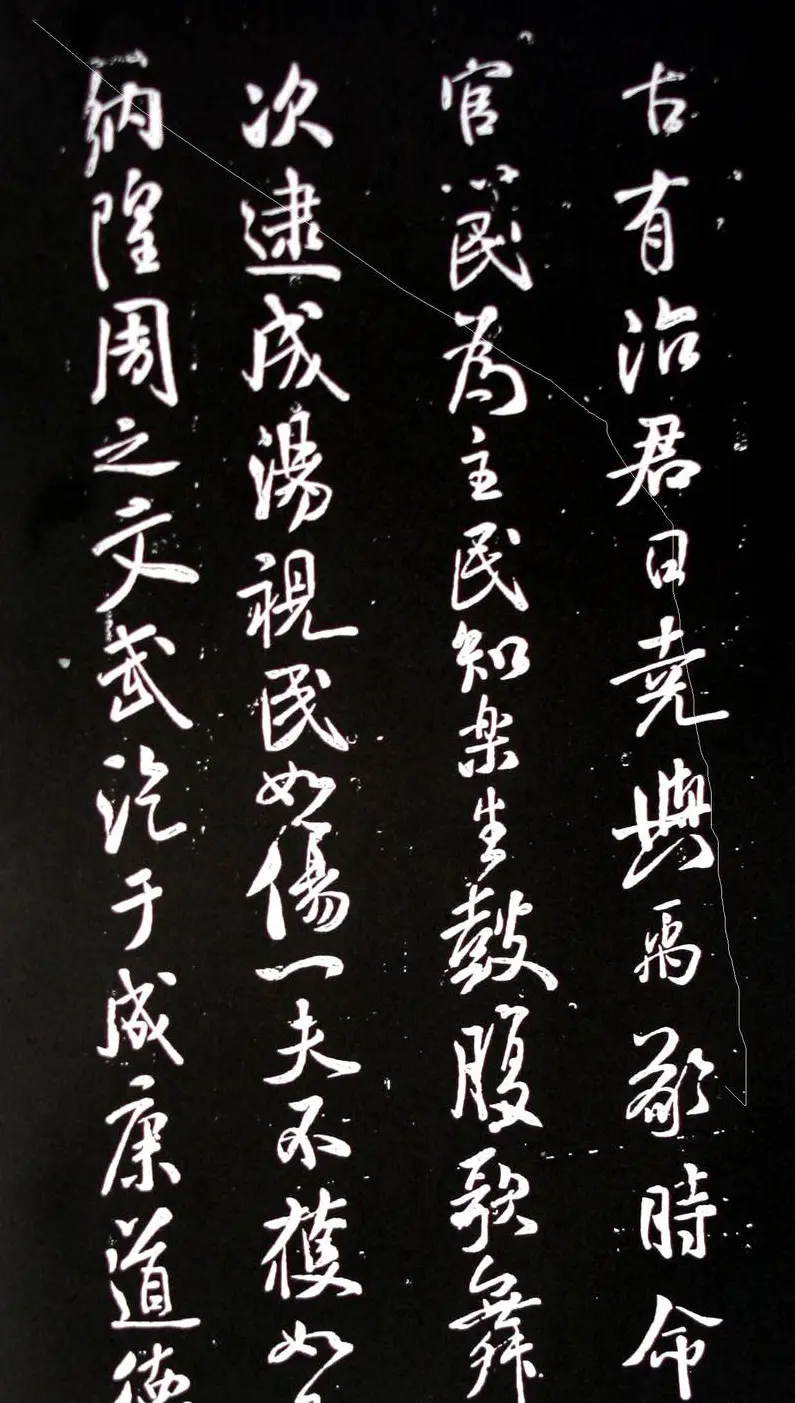 古有治君曰堯與禹敬時命
官以民為主民知樂生鼓腹歌舞
次逮成湯視民如傷一夫不獲如
納隍周之文武汔于成康道德